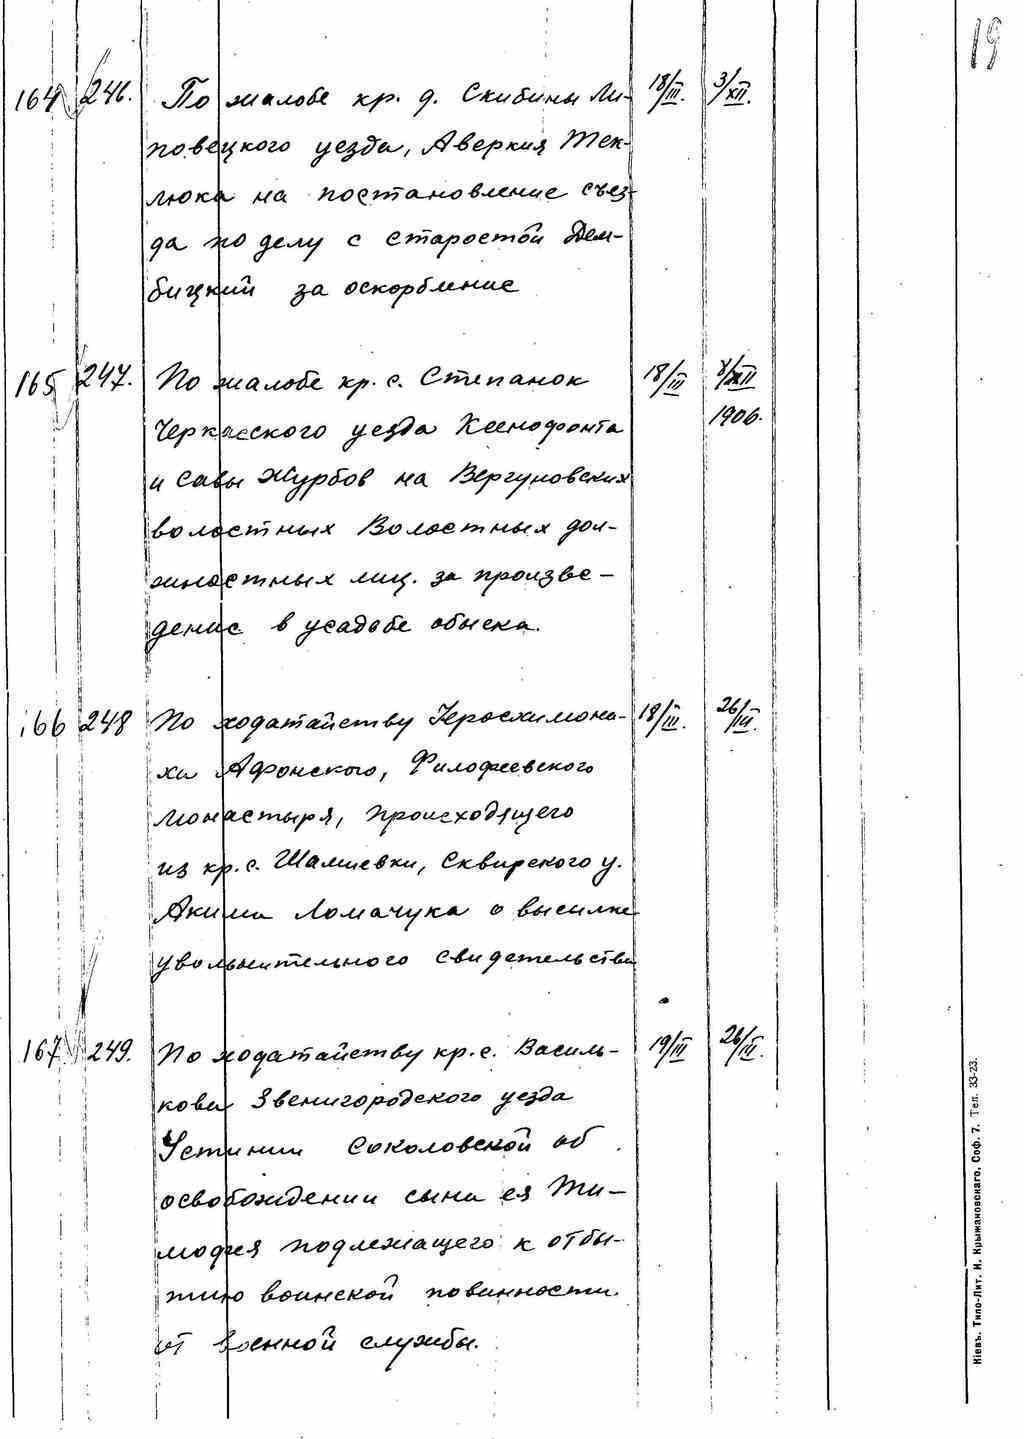 19
164 246. По жалобе кр. д. Скибины Ли- 18/III. 3/XII.
повецкого уезда, Аверкия Тек-
люка на постановление съез-
да по делу с старостой Дем-
бицкий за оскорбление
165 247. По жалобе кр. с. Степанок 18/III 8/XII
Черкасского уезда Ксенофонта 1906.
и Савы Журбов на Вергуновских
волостных Волостных дол-
жностных лиц. за произве-
дение в усадьбе обыска.
166 248 По ходатайству Иеросхимона- 18/III. 26/III.
ха Афонского, Филофеевского
монастыря, происходящего
из кр. с. Шалиевки, Сквирского у.
Акима Ломачука о высылке
увольнительного свидетельства
167 249. По ходатайству кр. с. Василь- 19/III 26/III.
кова Звенигородского уезда
Устинии Соколовской об
освобождении сына ея Ти-
мофея подлежащего к отбы-
тию воинской повинности.
от военной службы.
Кіевъ. Типо-Лит. И. Крыжановскаго, Соф. 7. Тел. 33-23.